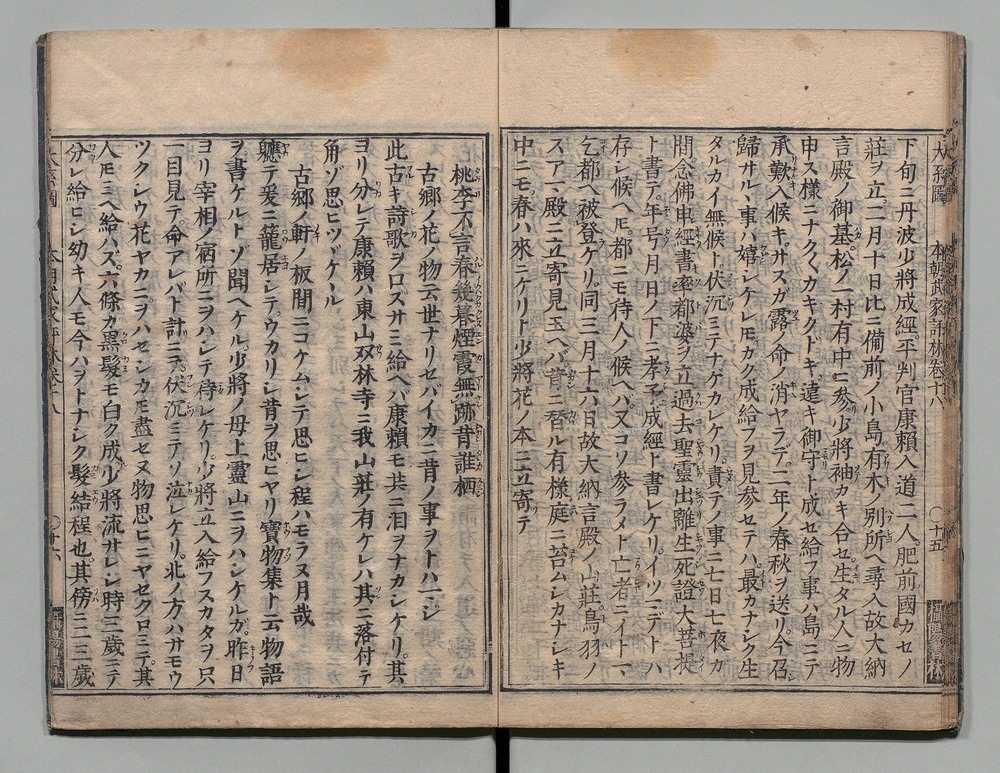 大系圖 本朝武家評林卷十八 〇十五
下旬ニ丹波少將成經平判官康賴入道二人肥前國カセノ
莊ヲ立二月十日比ニ備前ノ小島有木ノ別所ヘ尋入故大納
言殿ノ御墓松ノ一村有中ニ參少將袖カキ合セ生タル人ニ物
申ス樣ニナク〱カキクドキ遠キ御守ト成セ給フ事ハ島ニテ
承歎入候キサスガ露ノ命ノ消ヤラデ二年ノ春秋ヲ送リ今召
歸サルヽ事ハ嬉シケレモカク成給フヲ見參セテハ最カナシク生
タルカイ無候ト伏沉ミテナケカレケリ責テノ事ニ七日七夜カ
間念佛申經書率都婆ヲ立過去聖靈出離生死證大菩提
ト書テ年号月日ノ下ニ孝子成經ト書レケリイツミデトハ
存レ候ヘ𪜈都ニモ待人ノ候ヘバ又コソ參ラメト亡者ニイトマ
乞都ヘ被登ケリ同三月十六日故大納言殿ノ山莊鳥羽ノ
スアマ殿ニ立寄見玉ヘバ昔ニ替ル有樣庭ニ苔ムシカナシキ
中ニモ春ハ來ニケリト少將花ノ本ニ立寄テ
桃李不言春幾暮煙霞無跡昔誰栖
古郷ノ花ノ物云世ナリセバイカニ昔ノ事ヲトハマシ
此古キ詩歌ヲロズサミ給ヘバ康賴モ共ニ泪ヲナカシケリ其
ヨリ分レテ康賴ハ東山双林寺ニ我山莊ノ有ケレハ其ニ落付テ
角ゾ思ヒツヾケヽル
古郷ノ軒ノ板間ニコケムシテ思ヒシ程ハモラヌ月哉
軈テ爰ニ籠居シテウカリシ昔ヲ思ヒヤリ寶物集ト云物語
ヲ書ケルトゾ聞ヘケル少將ノ母上靈山ニヲハシケルガ昨日
ヨリ宰相ノ宿所ニヲハシテ待レケリ少將立入給フスカタヲ只
一目見テ命アレバト計ニテ伏沉ミテソ泣レケリ北ノ方ハサモウ
ツクシウ花ヤカニヲハセシカ𪜈盡セヌ物思ヒニヤセクロミテ其
人𪜈ミヘ給ハズ六條カ黑髮モ白ク成少將流サレシ時三歲ニテ
分レ給ヒシ幼キ人モ今ハヲトナシク髮結程也其傍ニ三歲
大系圖 本朝武家評林卷十八 〇十六